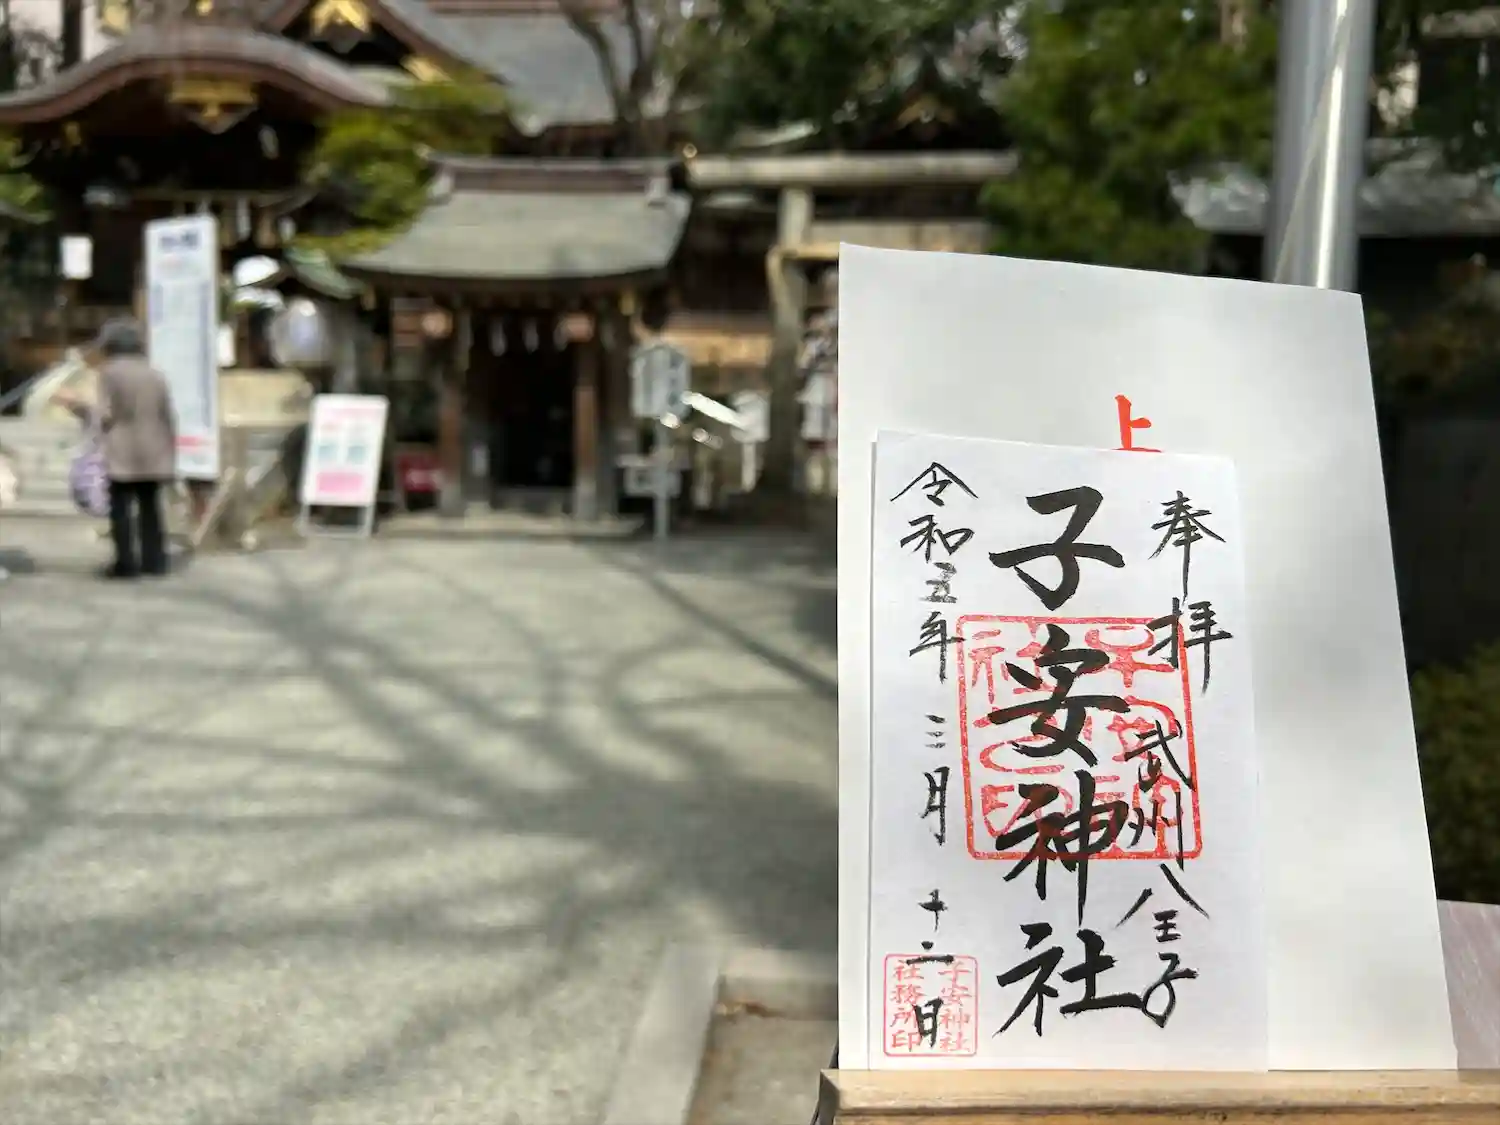 上
奉拝
武州八王子
子安神社
令和五年三月十二日
子安神社
社務所印